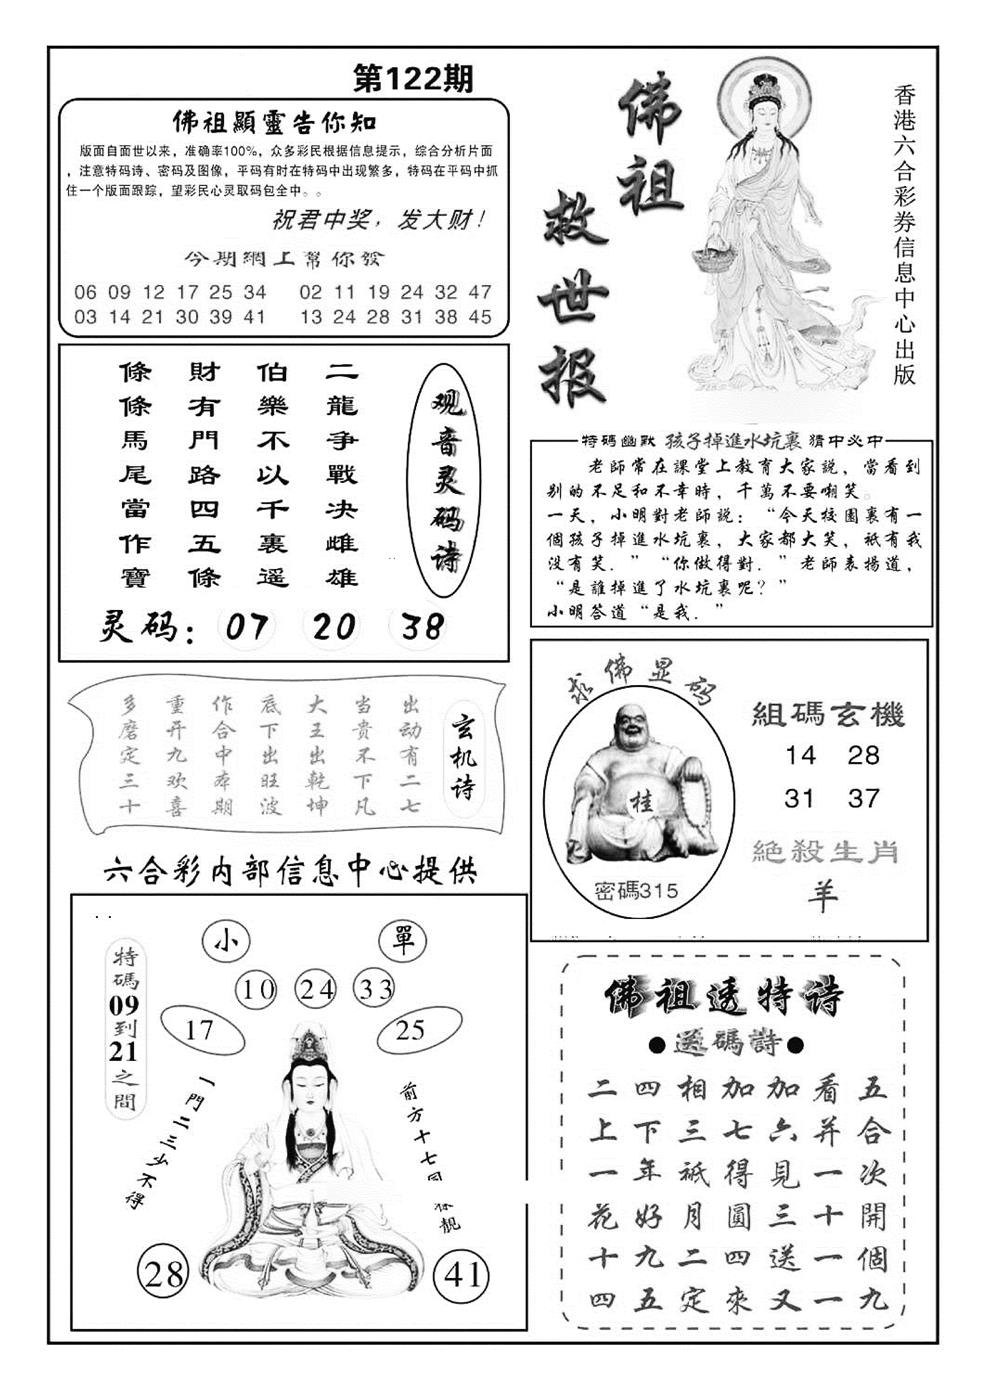 第122期
佛祖顯靈告你知
版面自面世以来，准确率100%，众多彩民根据信息提示，综合分析片面
，注意特码诗、密码及图像，平码有时在特码中出现繁多，特码在平码中抓
住一个版面跟踪，望彩民心灵取码包全中。。
祝君中奖，发大财！
今期網上幫你發
06 09 12 17 25 34 02 11 19 24 32 47
03 14 21 30 39 41 13 24 28 31 38 45
佛祖
救世报
香港六合彩券信息中心出版
观音灵码诗
二龍争戰决雌雄
伯樂不以千裏遥
財有門路四五條
條條馬尾當作寶
灵码：07 20 38
特碼幽默 孩子掉進水坑裏 猜中必中
老師常在課堂上教育大家説，當看到
别的不足和不幸時，千萬不要嘲笑。
一天，小明對老師説：“今天校園裏有一
個孩子掉進水坑裏，大家都大笑，衹有我
没有笑．”“你做得對．”老師表揚道，
“是誰掉進了水坑裏呢？”
小明答道“是我．”
玄机诗
出动有二七
当贵不下凡
大王出乾坤
底下出旺波
作合中本期
重开九欢喜
多磨定三十
求佛显码
桂
密碼315
組碼玄機
14 28
31 37
絕殺生肖
羊
六合彩内部信息中心提供
特碼09到21之間
小 單
10 24 33
17 25
一門二三少不得
前方十七
靚
28 41
佛祖透特诗
●送碼詩●
五合次開個九
看并一十一一
加六見三送又
加七得圓四來
相三衹月二定
四下年好九五
二上一花十四